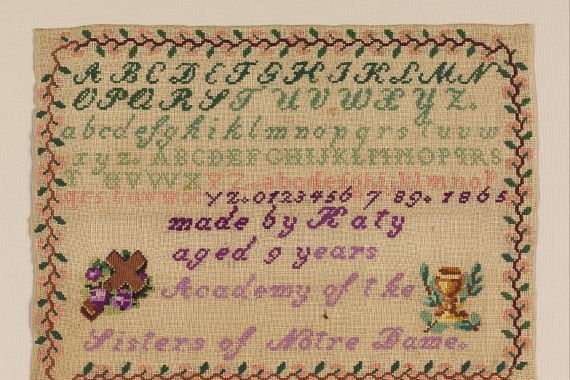 A B C D E F G H I K L M N
O P Q R S T U V W X Y Z.
a b c d e f g h i k l m n o p q r s t u v w
x y z. A B C D E F G H I J K L M N O P Q R S
T U V W X Y Z. a b c d e f g h i j k l m n o p
q r s t u v w x y z. 0 1 2 3 4 5 6 7 8 9. 1 8 6 5
made by Katy
aged 9 years
Academy of the
Sisters of Nôtre Dame.